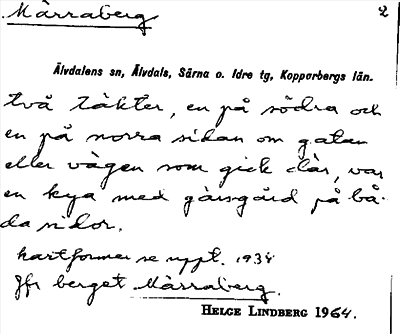 Märraberg 2
Älvdalens sn, Älvdals, Särna o. Idre tg, Kopparbergs län.
två täkter, en på södra och
en på norra sidan om gatan
eller vägen som gick där, var
en kya med gärsgård på bå-
da sidor.
kartformer se uppt. 1938
Jfr berget Märraberg.
HELGE LINDBERG 1964.